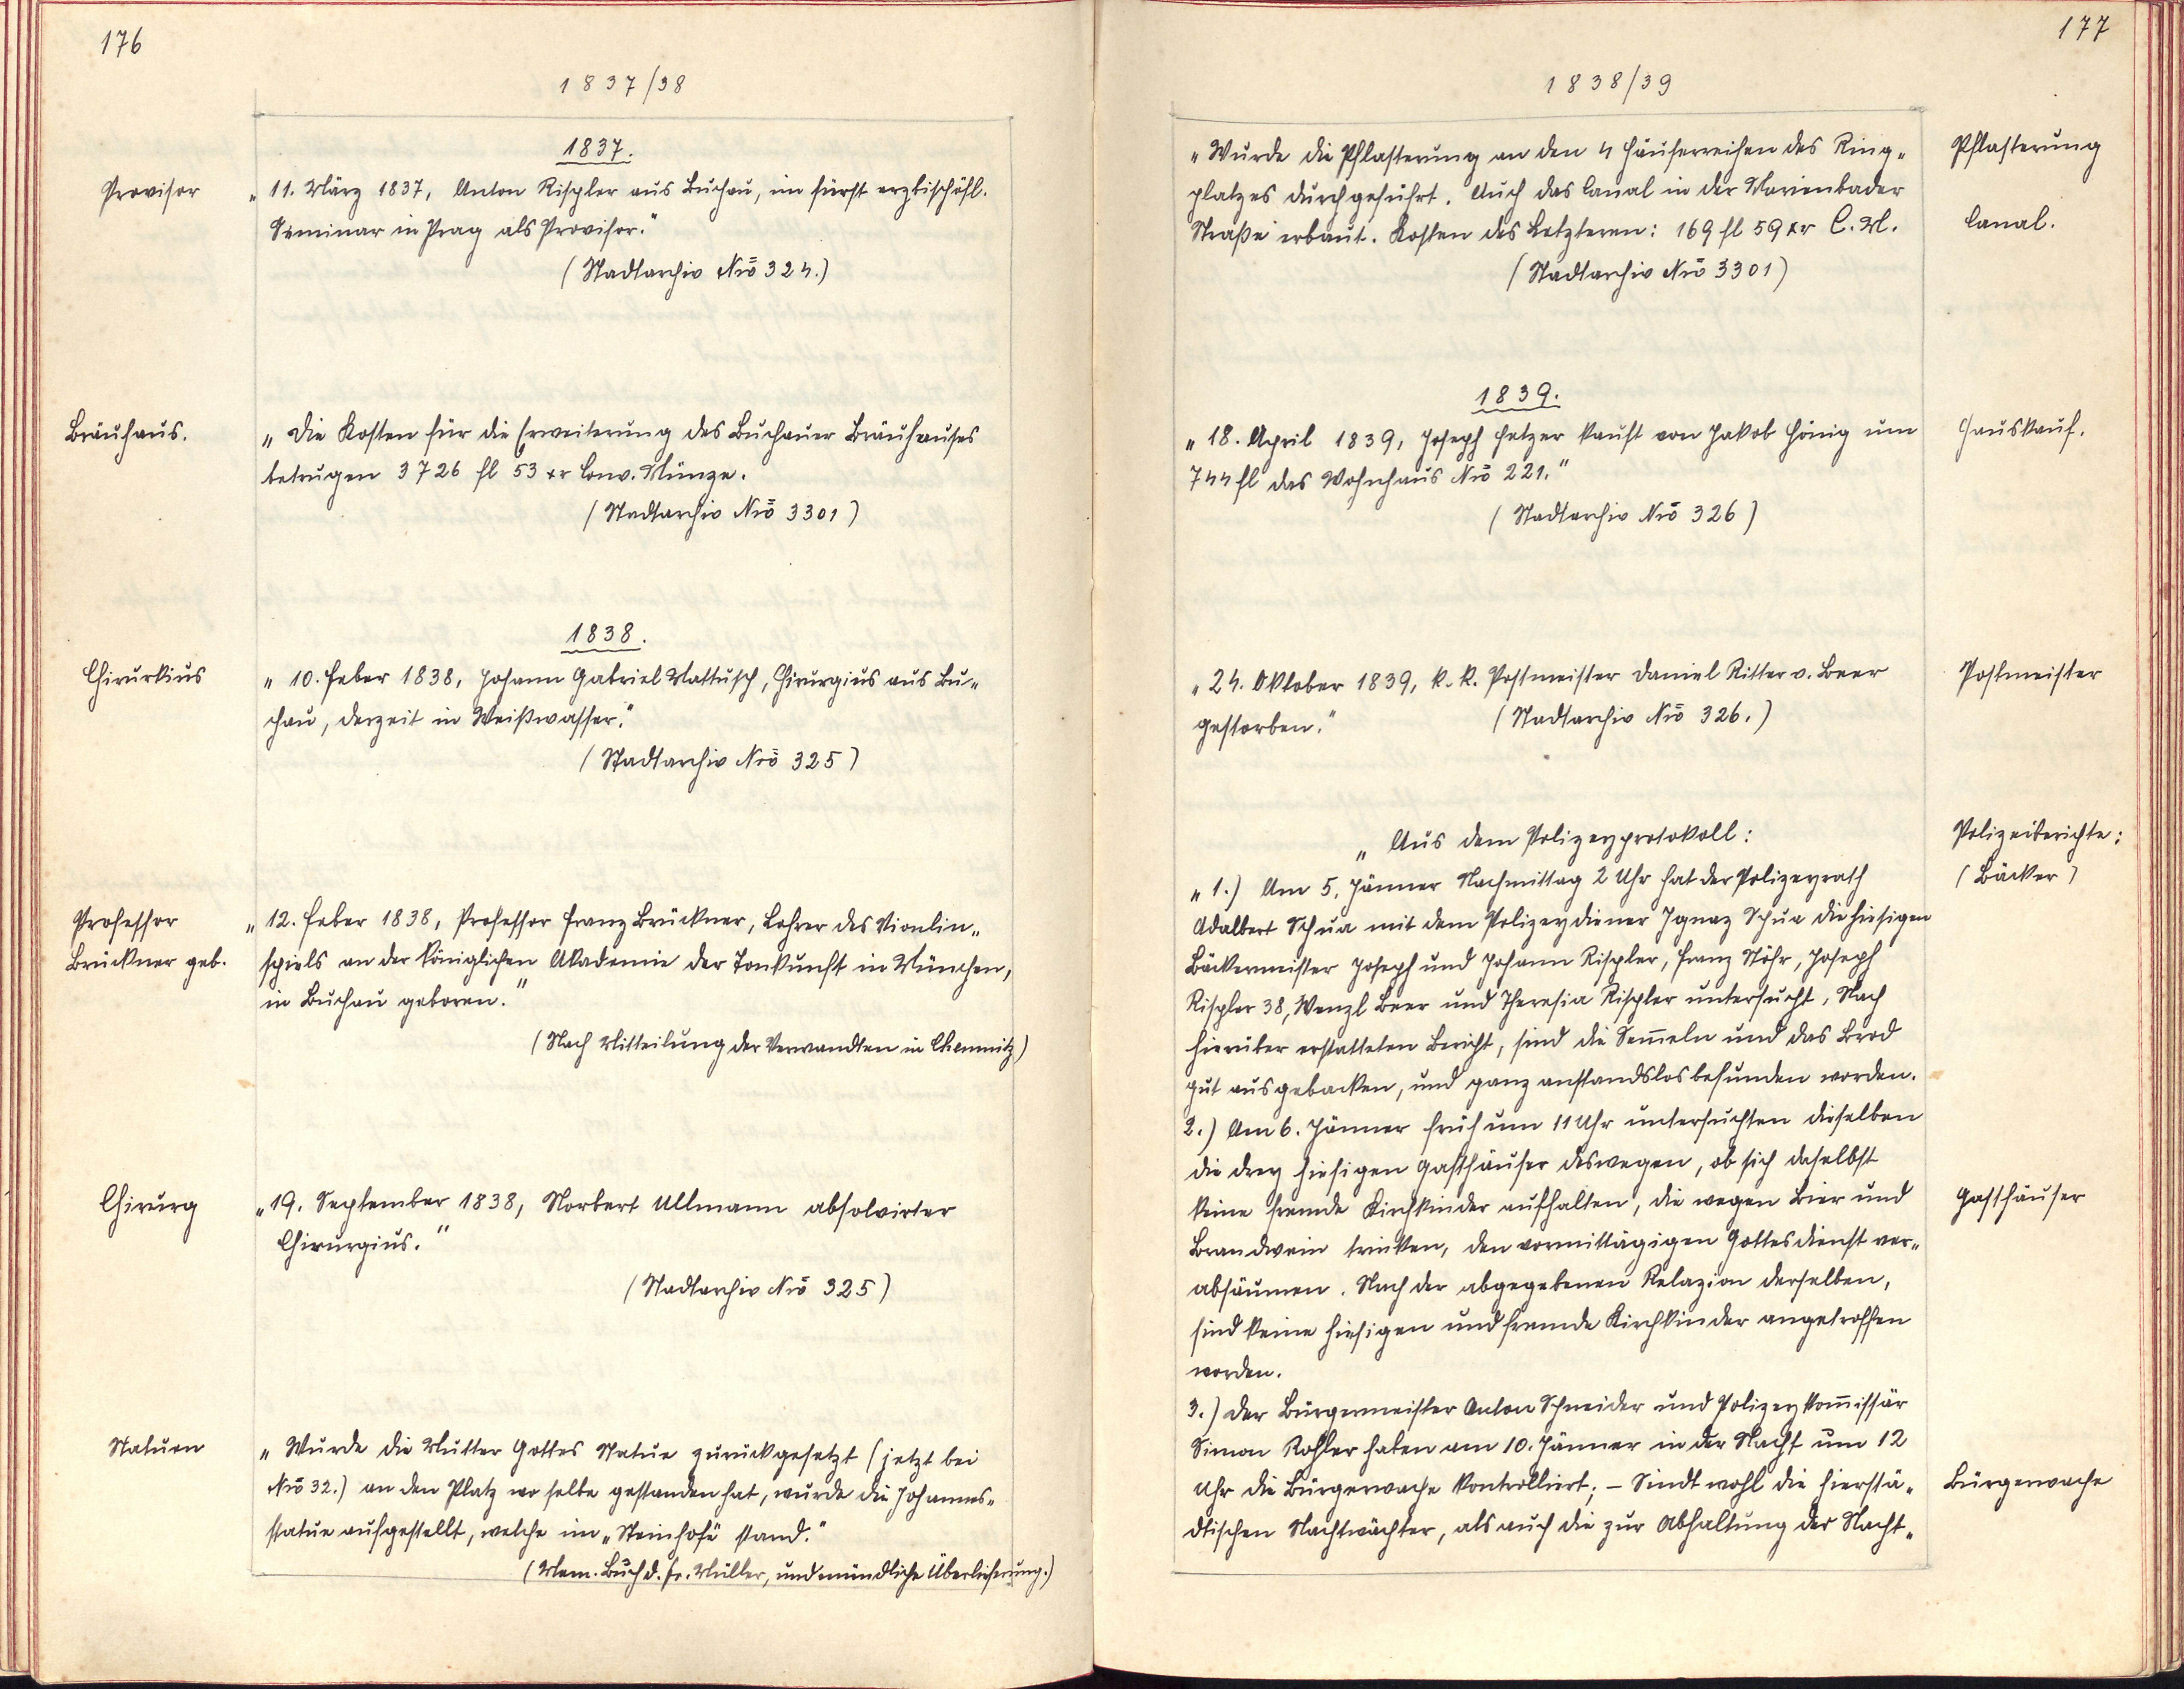 176
1837/38
1837.
Provisor
„11. März 1837, Anton Rischler aus Buchau, im fürst erzbischöfl.
Seminar in Prag als Provisor."
(Stadtarchiv Nro 324.)
Bräuhaus.
„Die Kosten für die Erweiterung des Buchauer Bräuhauses
betrugen 3726 fl 53 xr Conv. Münze.
(Stadtarchiv Nro 3301)
1838.
Chirurkius
„10. Feber 1838, Johann Gabriel Mattusch, Chirurgius aus Bu„
chau, derzeit in Weißwasser."
(Stadtarchiv Nro 325)
Professor
Brückner geb.
„12. Feber 1838, Professor Franz Brückner, Lehrer des Violin„
spiels an der königlichen Akademie der Tonkunst in München,
in Buchau geboren."
(Nach Mitteilung der Verwandten in Chemnitz)
Chirurg
„19. September 1838, Norbert Ullmann absolvirter
Chirurgius."
(Stadtarchiv Nro 325)
Statuen
„Wurde die Mutter Gottes Statue zurückgesetzt (jetzt bei
Nro 32.) an den Platz wo selbe gestanden hat, wurde die Johannes„
statue aufgestellt, welche im „Steinhofe stand."
(Mem. Buch d. Fr. Müller, und mündliche Überlieferung.)
177
1838/39
„Wurde die Pflasterung an den 4 Häuserreihen des Ring„
platzes durchgeführt. Auch das Canal in der Marienbader
Straße erbaut. Kosten des Letzteren: 169 fl 59 xr C. M.
(Stadtarchiv Nro 3301)
Pflasterung
Canal.
1839.
„18. April 1839, Joseph Hetzer kauft von Jakob Hönig um
744 fl das Wohnhaus Nro 221."
(Stadtarchiv Nro 326)
Hauskauf.
„24. Oktober 1839, k. k. Postmeister Daniel Ritter v. Beer
gestorben."
(Stadtarchiv Nro 326.)
Postmeister
„Aus dem Polizeyprotokoll:
Polizeiberichte:
(Bäcker)
„1.) Am 5. Jänner Nachmittag 2 Uhr hat der Polizeyrath
Adalbert Schua mit dem Polizeydiener Ignaz Schua die hiesigen
Bäckermeister Joseph und Johann Rischler, Franz Stöhr, Joseph
Rischler 38, Wenzl Beer und Theresia Rischler untersucht, Nach
hierüber erstatteten Bericht, sind die Sem̄eln und das Brod
gut ausgebacken, und ganz anstandslos befunden worden.
2.) Am 6. Jänner früh um 11 Uhr untersuchten dieselben
die drey hiesigen Gasthäuser deswegen, ob sich daselbst
keine fremde Kirchkinder aufhalten, die wegen Bier und
Brandwein trinken, den vormittägigen Gottesdienst ver„
absäumen. Nach der abgegebenen Relazion derselben,
sind keine hiesigen und fremde Kirchkinder angetroffen
worden.
Gasthäuser
3.) Der Bürgermeister Anton Schneider und Polizeykom̄issär
Simon Kohler haben am 10. Jänner in der Nacht um 12
Uhr die Bürgerwache kontrolliert; – Sindt wohl die hierstä„
dtischen Nachtwächter, als auch die zur Abhaltung der Nacht„
Bürgerwache